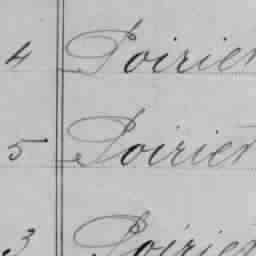 4 Poirier
5 Poirier
3 Poirier